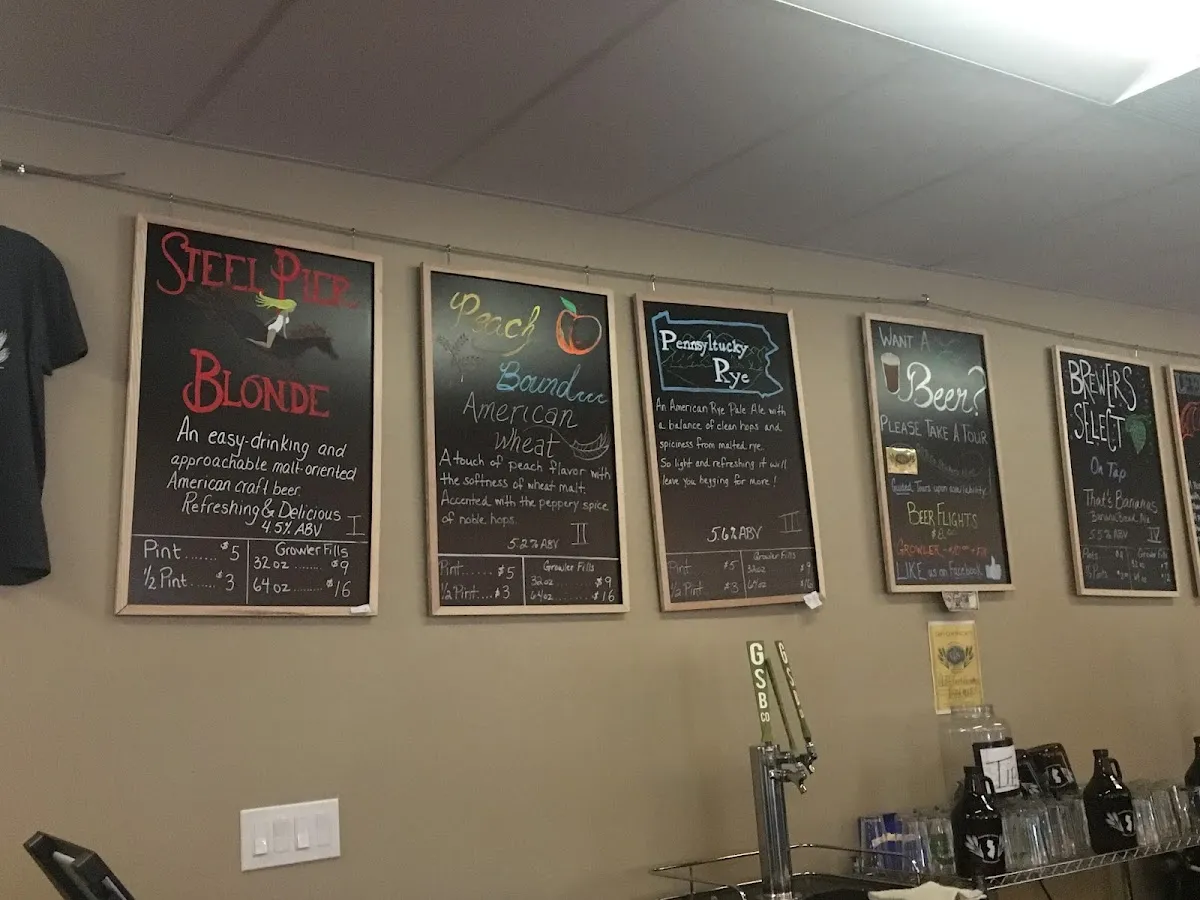 STEEL PIER
BLONDE
An easy-drinking and
approachable malt-oriented
American craft beer.
Refreshing & Delicious
4.5% ABV I
Pint....... $5
1/2 Pint..... $3
Growler Fills
32 oz ....... $9
64 oz ....... $16
Peach
Bound...
American
Wheat
A touch of peach flavor with
the softness of wheat malt.
Accented with the peppery spice
of noble hops.
5.2% ABV II
Pint....... $5
1/2 Pint.... $3
Growler Fills
32oz ....... $9
64oz ....... $16
Pennsyltucky
Rye
An American Rye Pale Ale with
a balance of clean hops and
spiciness from malted rye.
So light and refreshing it will
leave you begging for more!
5.6% ABV III
Pint $5
1/2 Pint $3
Growler Fills
32oz $9
64oz $16
WANT A
Beer?
PLEASE TAKE A TOUR
Guided Tours upon availability.
BEER FLIGHTS
$8.00
GROWLER
LIKE us on Facebook
BREWERS
SELECT
On Tap
That's Bananas
Banana Bread Ale
5.5% ABV IV
GSB
CO
GSB